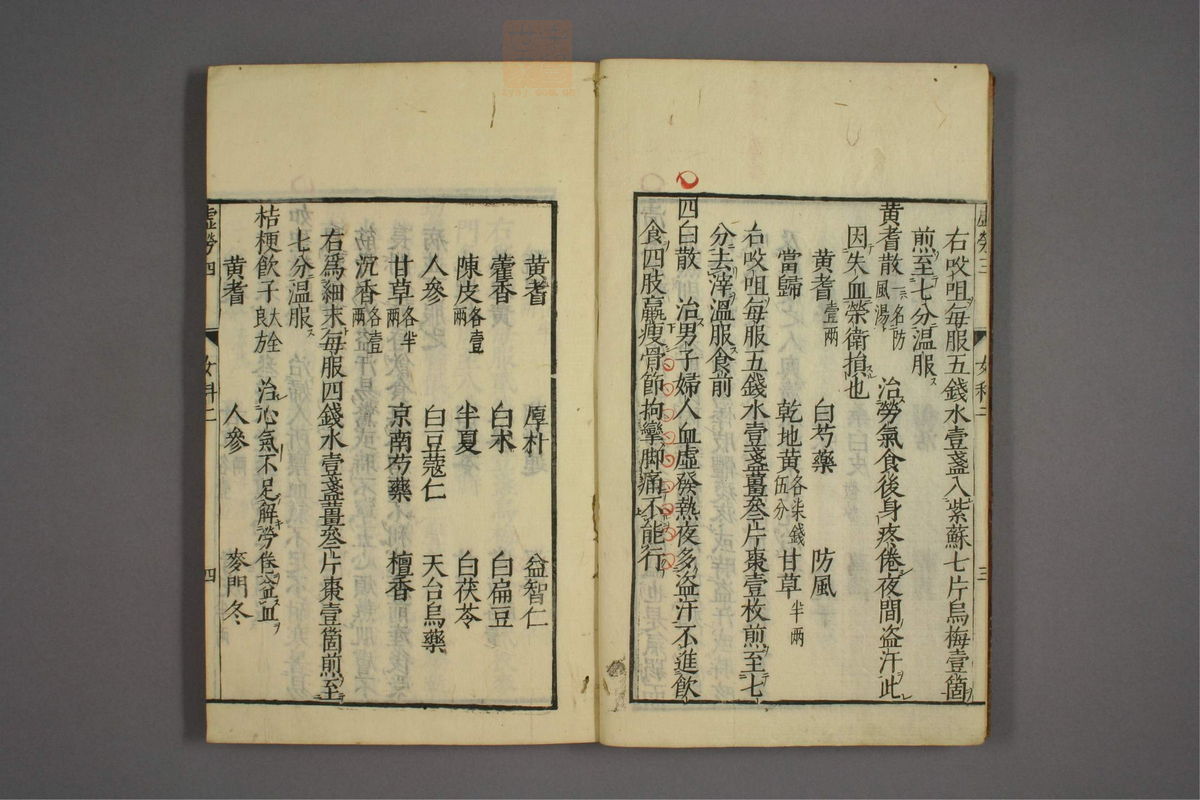 虛勞三　女科二　三
右㕮咀每服五錢水壹盞入紫蘇七片烏梅壹箇
煎至七分温服
黃耆散一名防風湯　治勞氣食後身疼倦夜間盗汗此
因失血榮衛損也
黃耆壹兩　白芍藥　防風
當歸　乾地黃各柒錢伍分　甘草半兩
右㕮咀每服五錢水壹盞薑叄片棗壹枚煎至七
分去滓溫服食前
四白散　治男子婦人血虛發熱夜多盗汗不進飲
食四肢羸瘦骨節拘攣脚痛不能行
黃耆　厚朴　益智仁
藿香　白朮　白扁豆
陳皮各壹兩　半夏　白茯苓
人參　白豆蔻仁　天台烏藥
甘草各半兩　京南芍藥　檀香
沉香各壹兩
右為細末每服四錢水壹盞薑叄片棗壹箇煎至
七分温服
桔梗飲子大全良方　治心氣不足解勞倦益血
黃耆　人參　麥門冬
虛勞四　女科二　四